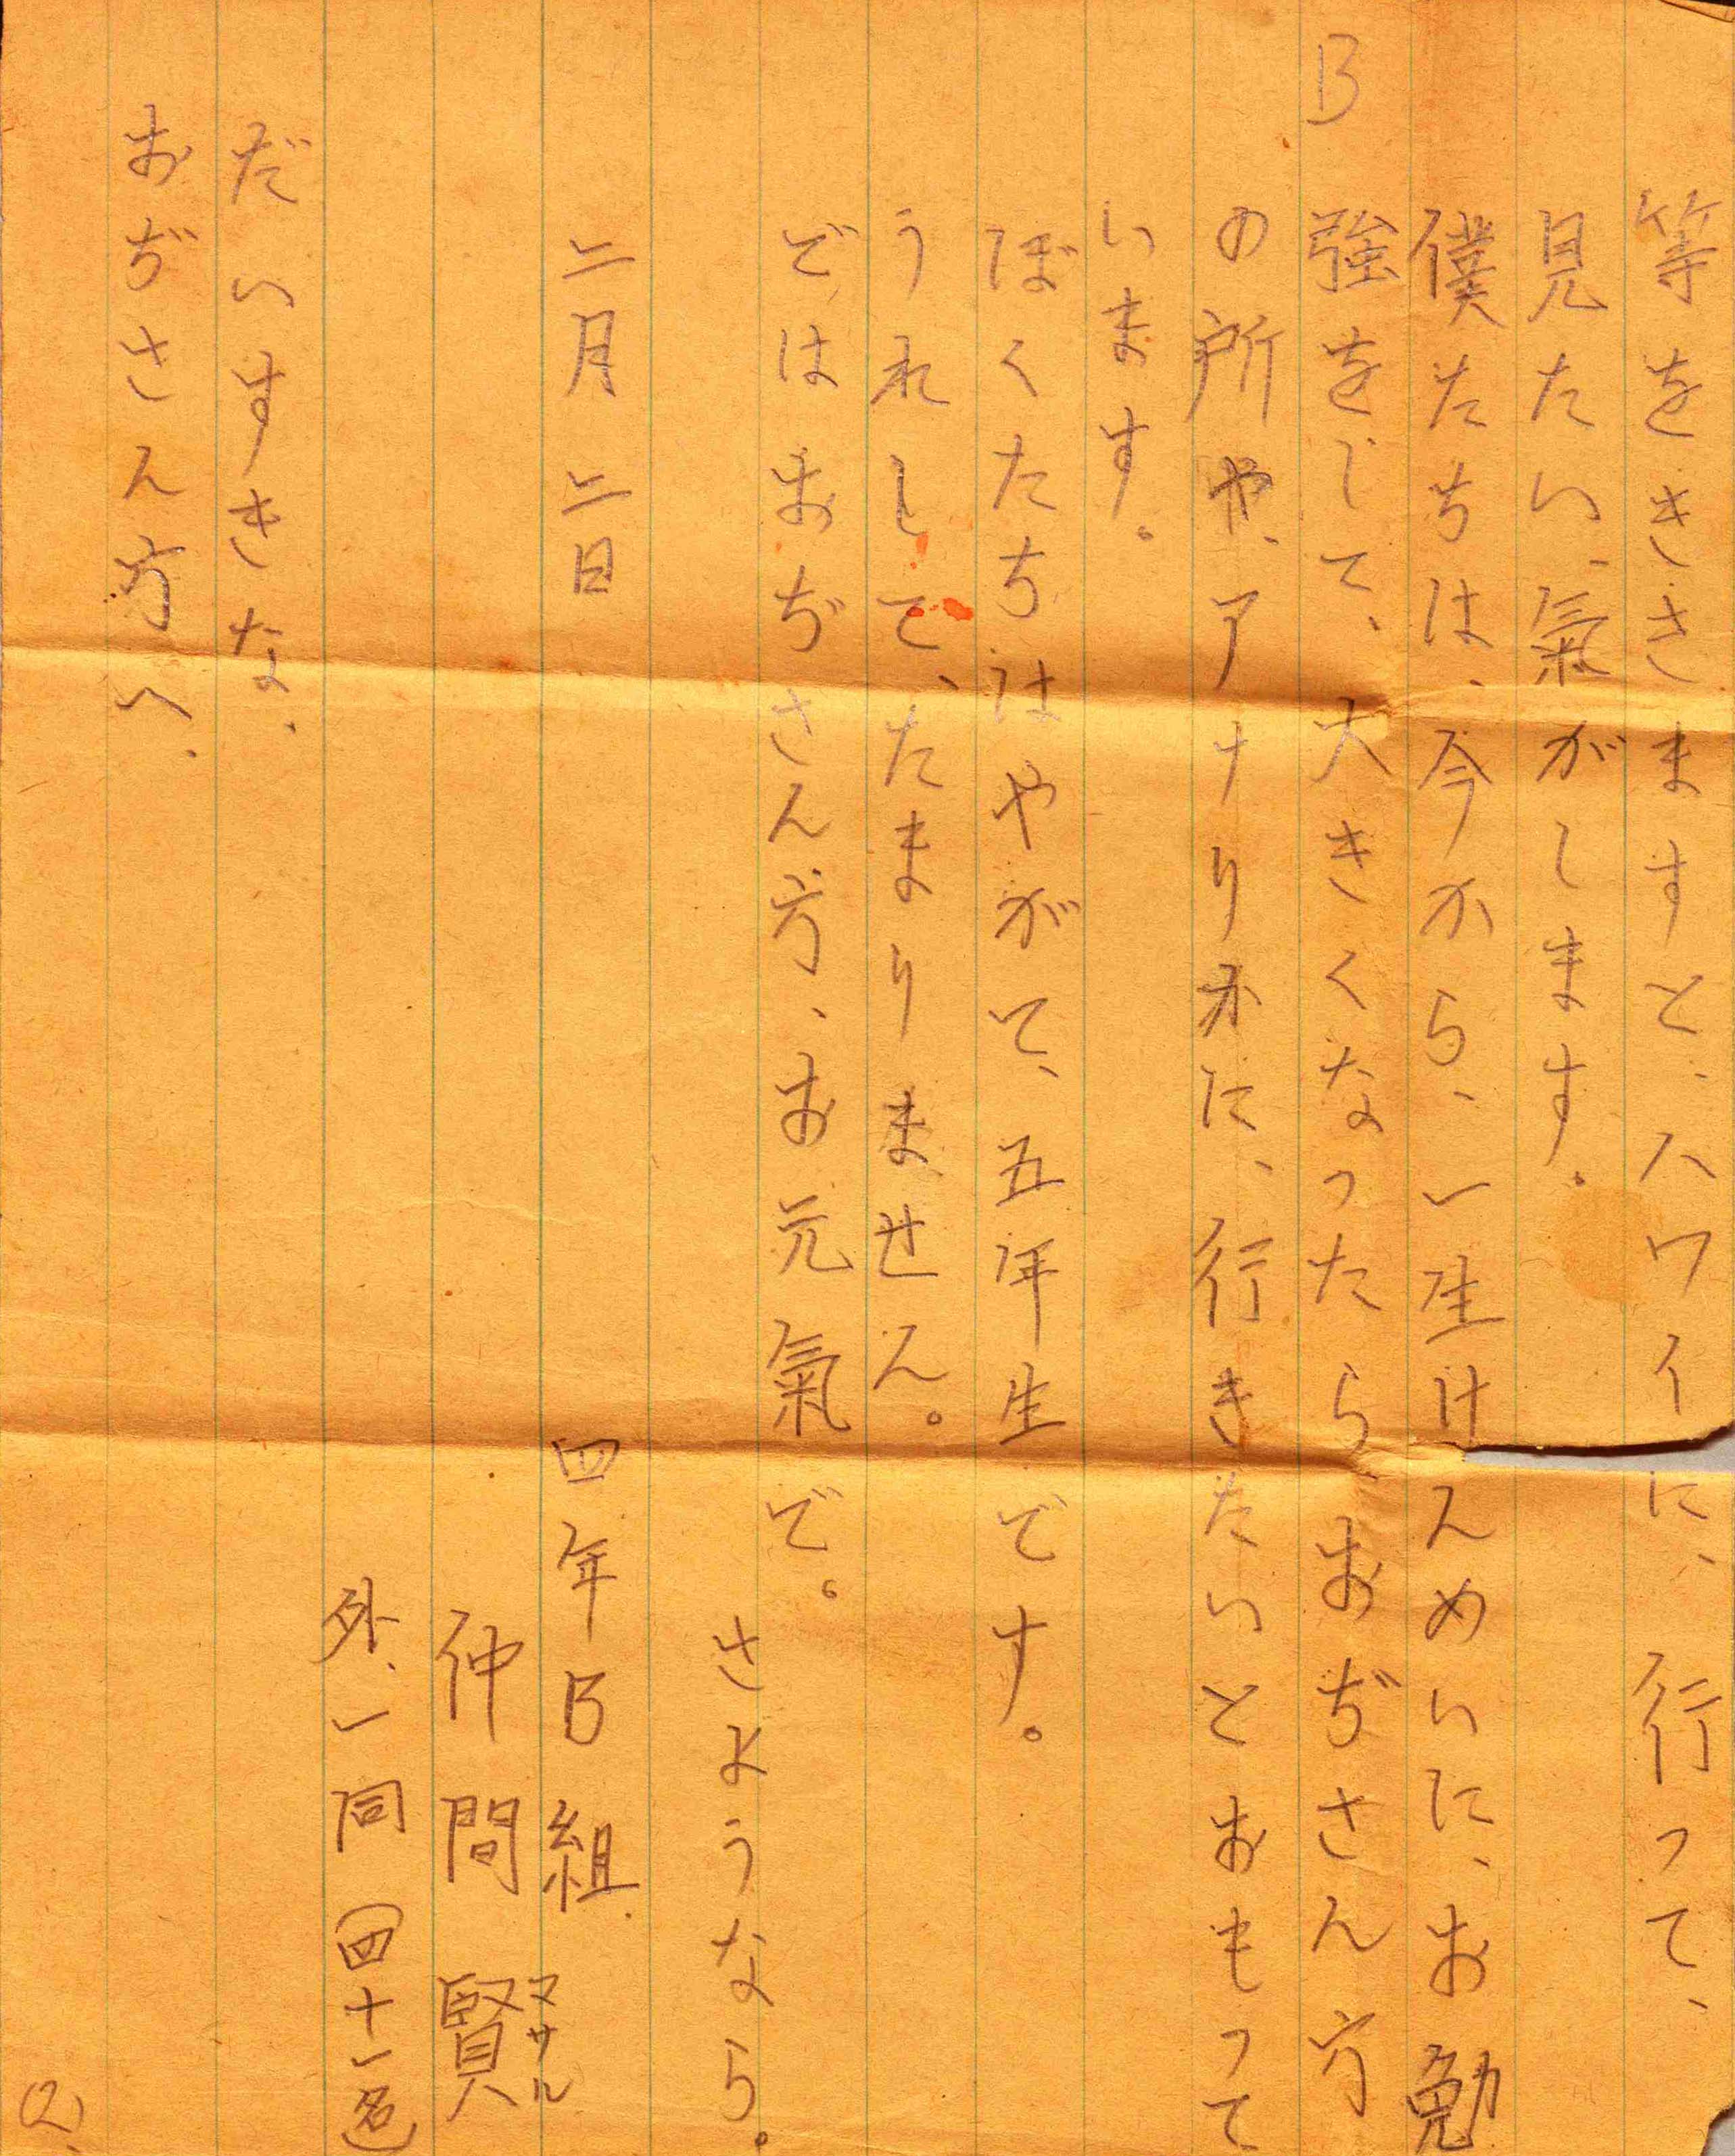 等をきゝますと、ハワイに、行って、
見たい、氣がします。
僕たちは、今から、一生けんめいに、お勉
B
強をして、大きくなったら、おぢさん方
の所や、アナリカに、行きたいとおもって
います。
ぼくたちはやがて、五年生です。
うれしして、たまりません。
ではおぢさん方、お元氣で。
さようなら。
二月二日
四年B組
仲間賢
マサル
外、一同(四十一名)
だいすきな、
おぢさん方へ、
(2)